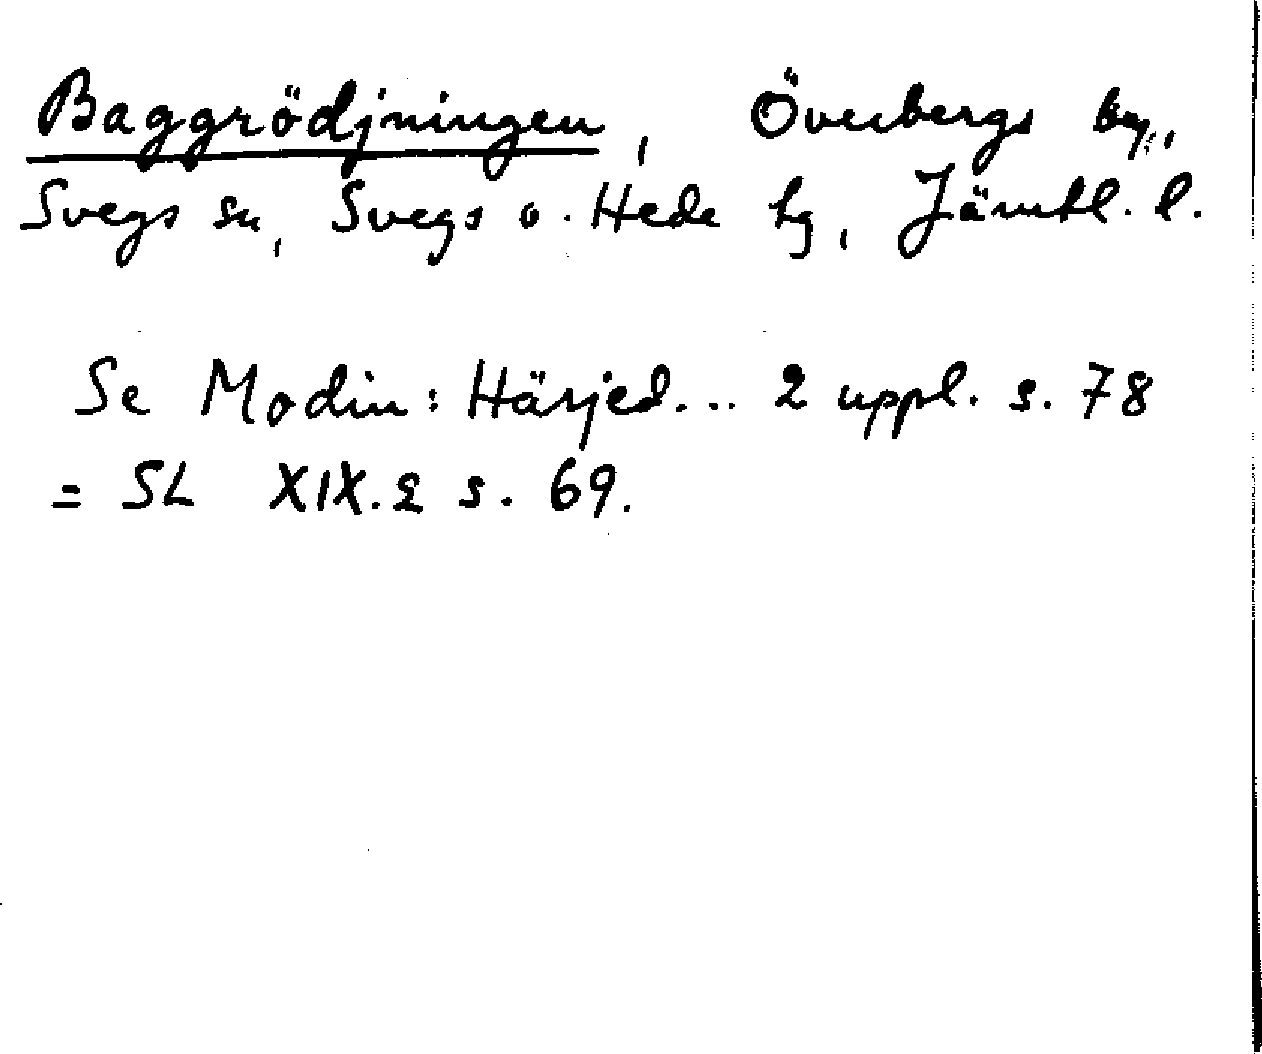 Baggrödjningen, Överbergs by,
Svegs sn, Svegs o. Hede tg, Jämtl. l.
Se Modin: Härjed... 2 uppl. s. 78
= SL XIX.2 s. 69.